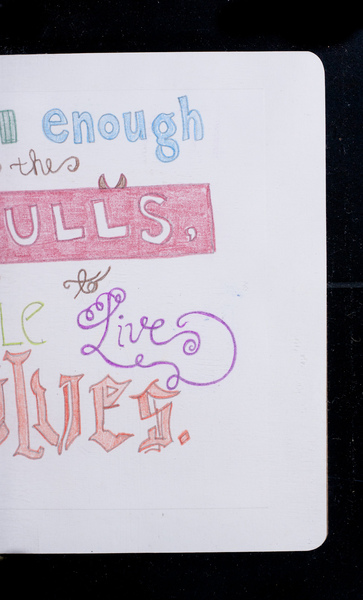 m enough
thes
ULLS,
to
LE Live
olves.